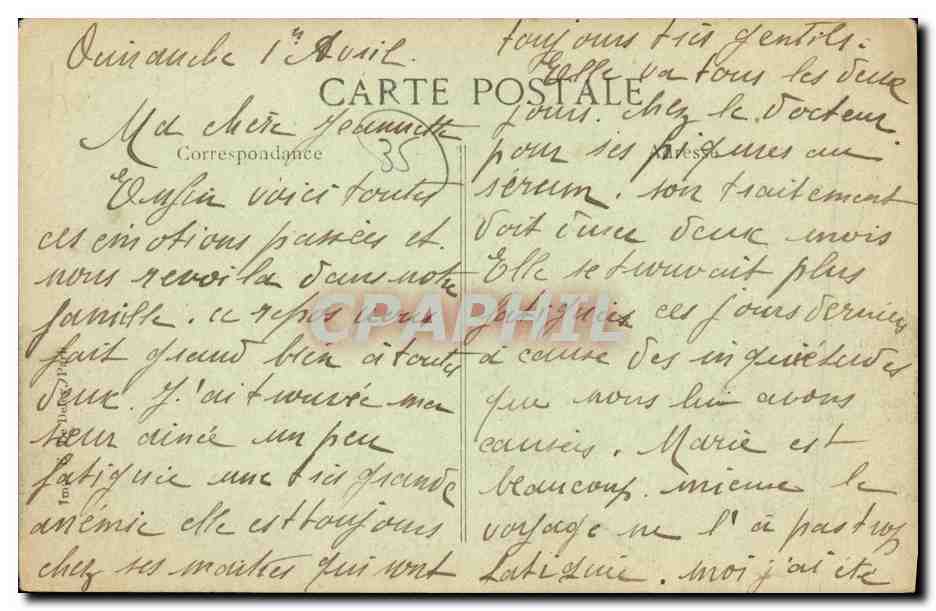 Dimanche 1er Avril.
CARTE POSTALE
Ma chère Jeannette
35
Correspondance
Enfin voici toutes
ces émotions passées et
nous revoila dans notre
famille. ce repos nous
fait grand bien à toutes
deux. J'ai trouvée ma
sœur ainée un peu
fatiguée une très grande
anémie elle est toujours
chez ses maitres qui sont
toujours très gentils.
Elle va tous les deux
jours. chez le docteur
pour ses piqures au
Adresse
sérum. son traitement
doit durer deux mois
Elle se trouvait plus
fatiguée ces jours derniers
a cause des inquiétudes
que nous lui avons
causées. Marie est
beaucoup. mieux le
voyage ne l'à pas trop
fatiguée. moi j'ai été
CPAPHIL